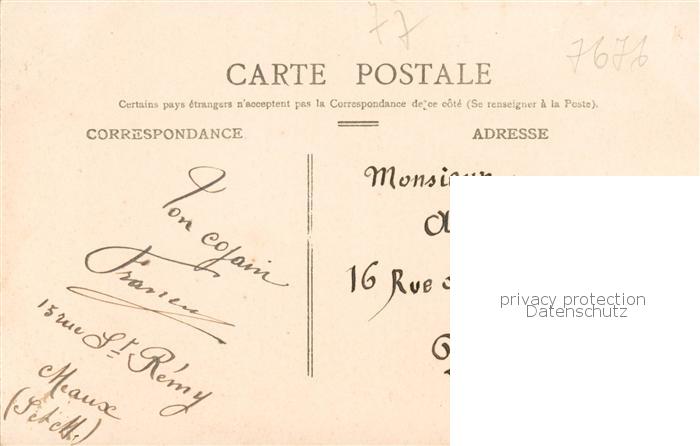 77
7676
CARTE POSTALE
Certains pays étrangers n'acceptent pas la Correspondance de ce côté (Se renseigner à la Poste).
CORRESPONDANCE
ADRESSE
Ton cousin
15 rue St Rémy
Meaux
(S et M.)
Monsieur
16 Rue
privacy protection
Datenschutz